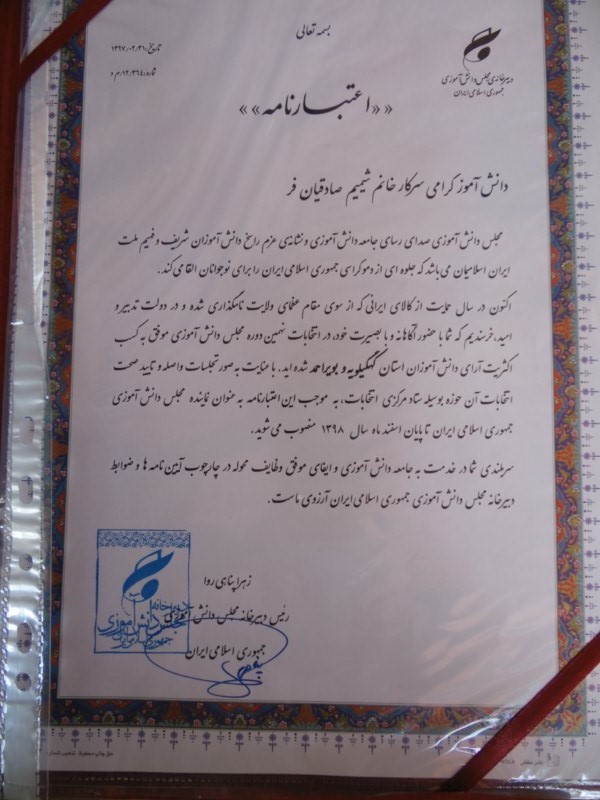 بسمه تعالی
دبیرخانه‌ی مجلس دانش آموزی
جمهوری اسلامی ایران
تاریخ: ۱۳۹۷/۰۲/۳۱
شماره: ۱۲/۳۶۴/م د
««اعتبارنامه»»
دانش آموز گرامی سرکار خانم شمیم صادقیان فر
مجلس دانش آموزی صدای رسای جامعه دانش آموزی و نشانه‌ی عزم راسخ دانش آموزان شریف و فهیم ملت
ایران اسلامیان می‌باشد که جلوه ای از دموکراسی جمهوری اسلامی ایران را برای نوجوانان القا می‌کند.
اکنون در سال حمایت از کالای ایرانی که از سوی مقام عظمای ولایت نامگذاری شده و در دولت تدبیر و
امید، خرسندیم که شما با حضور آگاهانه و با بصیرت خود، در انتخابات نهمین دوره مجلس دانش آموزی موفق به کسب
اکثریت آرای دانش آموزان استان کهگیلویه و بویراحمد شده اید. با عنایت به صورتجلسات واصله و تایید صحت
انتخابات آن حوزه بوسیله ستاد مرکزی انتخابات، به موجب این اعتبارنامه به عنوان نماینده مجلس دانش آموزی
جمهوری اسلامی ایران تا پایان اسفند ماه سال ۱۳۹۸ منصوب می‌شوید.
سربلندی شما در خدمت به جامعه دانش آموزی و ایفای موفق وظایف محوله در چارچوب آیین نامه ها و ضوابط
دبیرخانه مجلس دانش آموزی جمهوری اسلامی ایران آرزوی ماست.
زهرا پناهی روا
رئیس دبیرخانه مجلس دانش آموزی
جمهوری اسلامی ایران
دبیرخانه
مجلس دانش آموزی
جمهوری اسلامی ایران